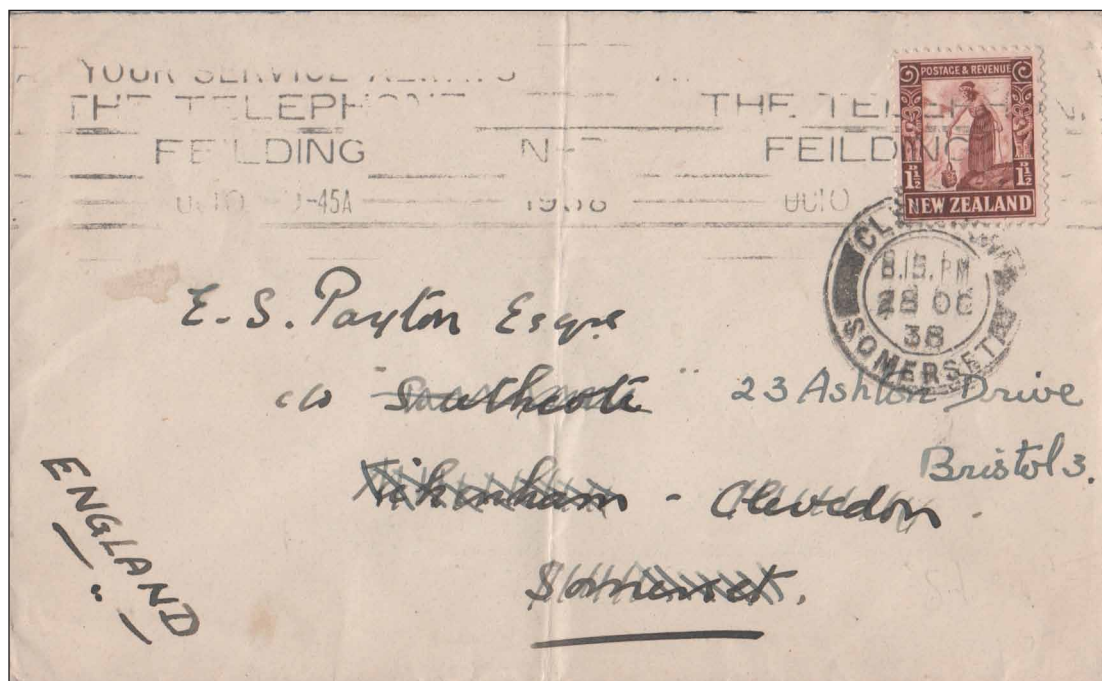 YOUR SERVICE
THE TELEPH THE TELEPHON
FEILDING N FEILDING
-45A 1938 OC10
POSTAGE & REVENUE
1½D 1½D
NEW ZEALAND
8.15.PM
28 OC
38
SOMERSET
E. S. Payton Esqre
c/o "Southcote" 23 Ashton Drive
Bristol 3.
Tickenham - Clevedon
Somerset.
ENGLAND